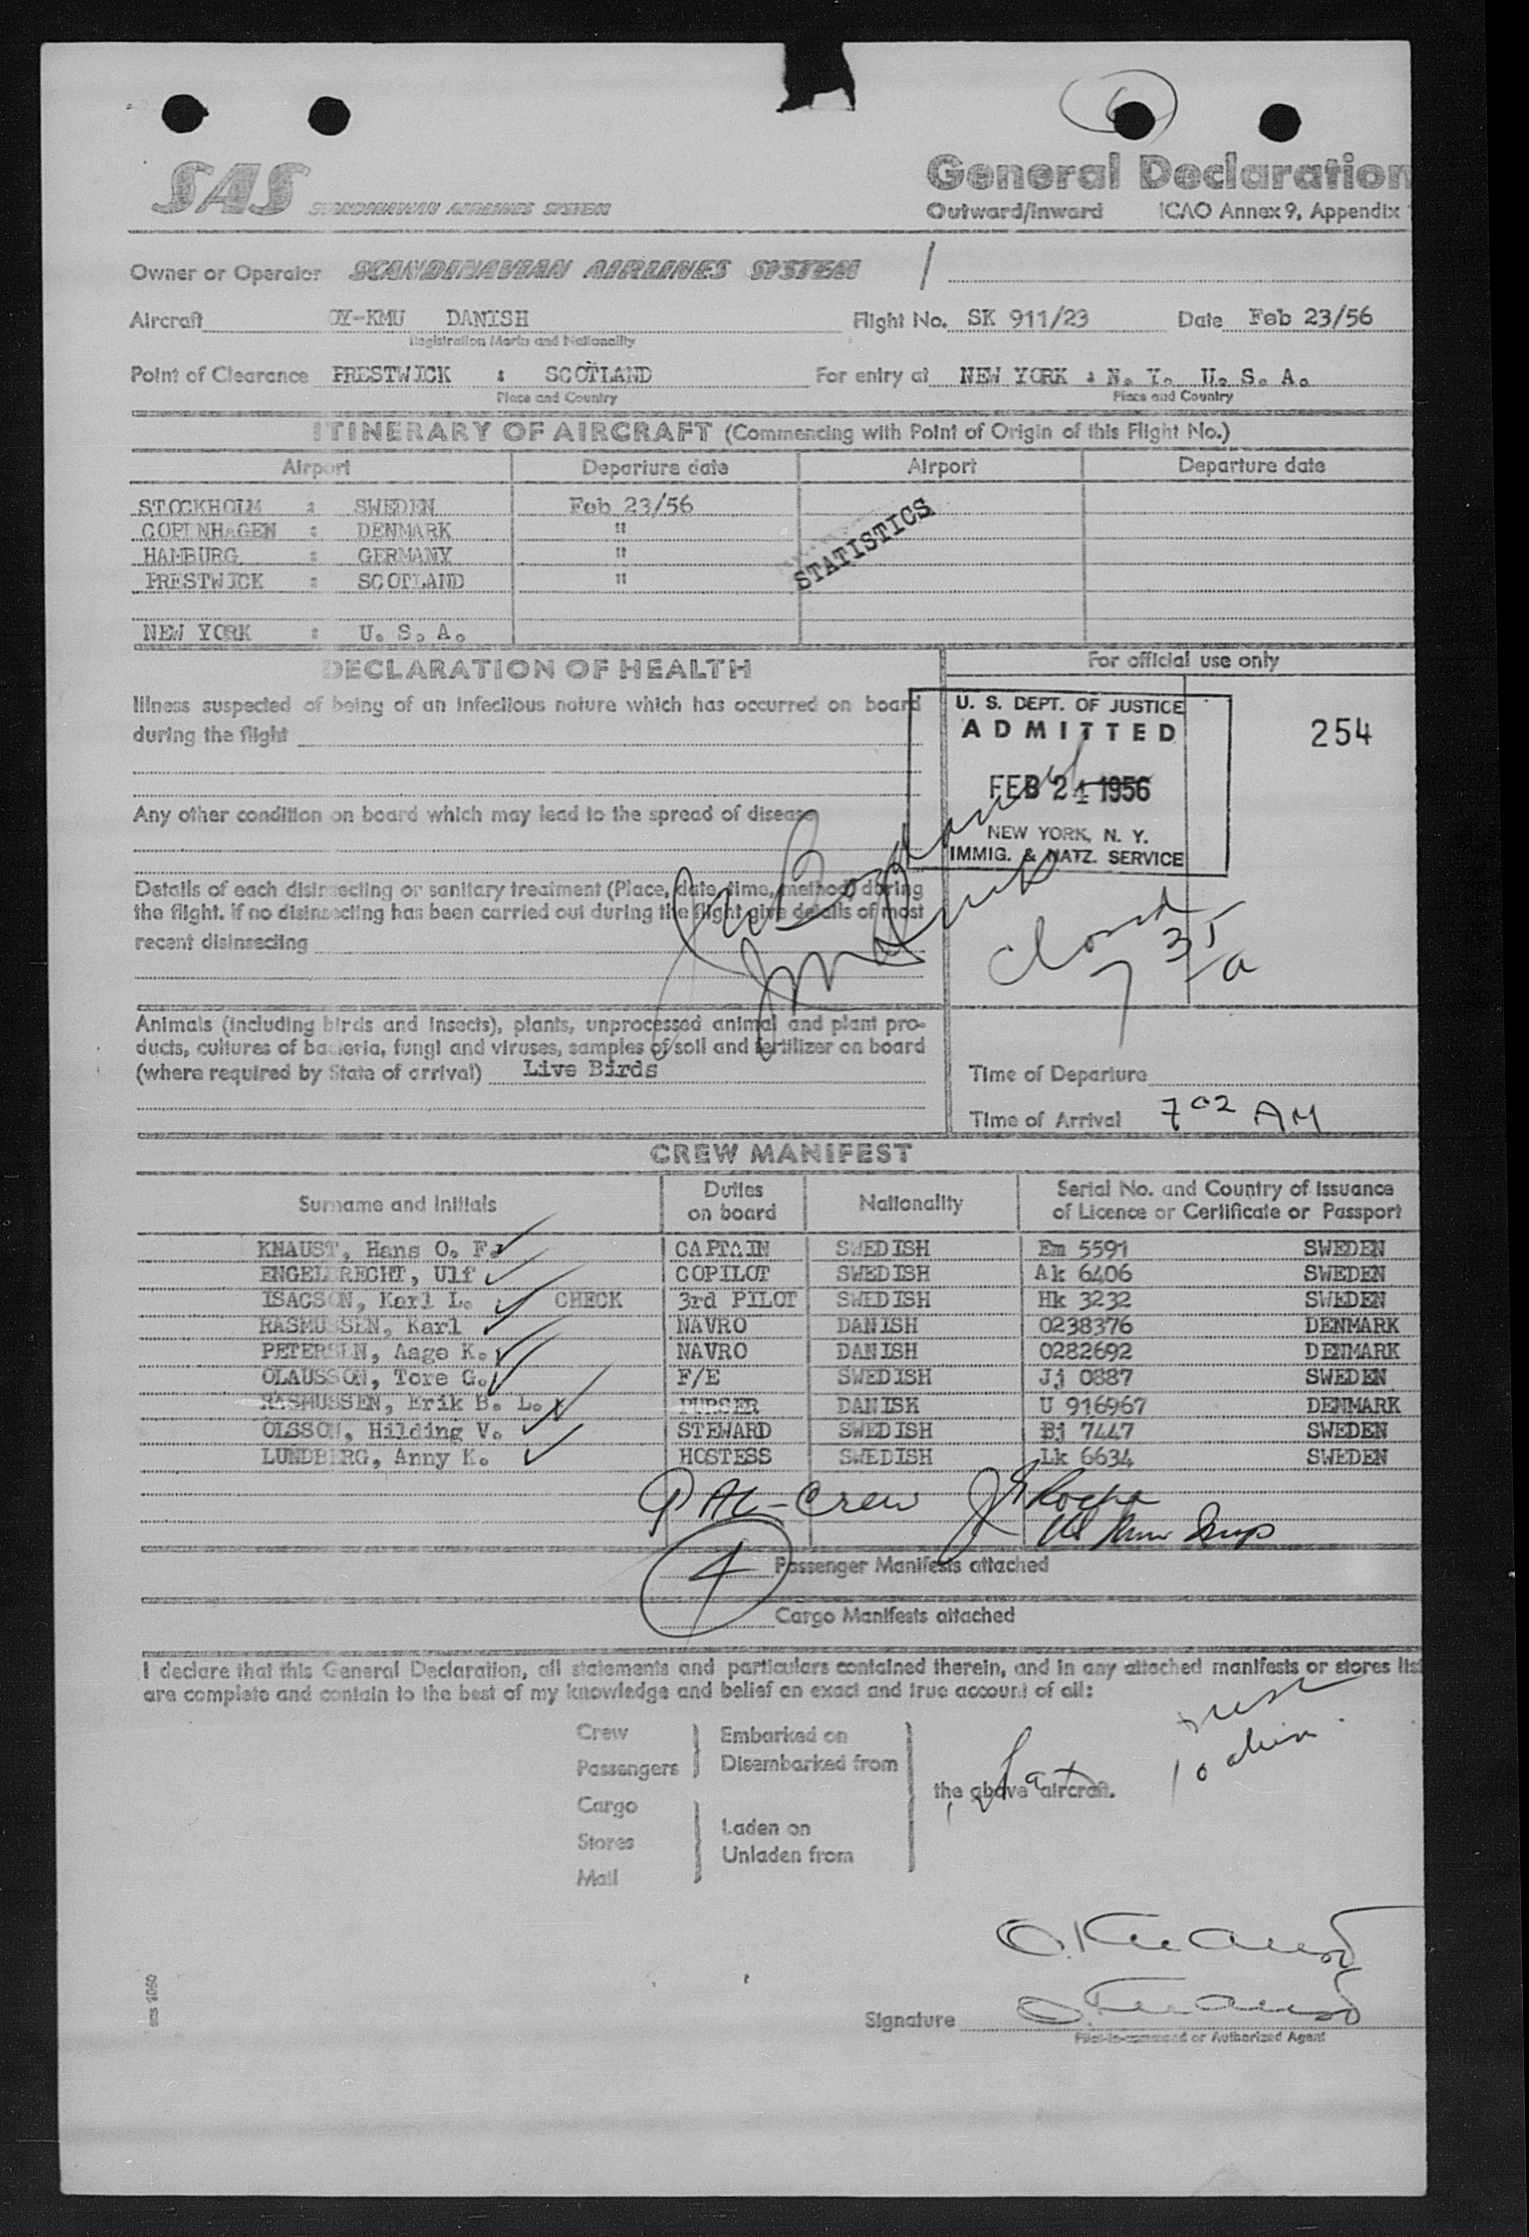 SAS SCANDINAVIAN AIRLINES SYSTEM
General Declaration
Outward/Inward ICAO Annex 9, Appendix
Owner or Operator SCANDINAVIAN AIRLINES SYSTEM
Aircraft OY-KMU DANISH Flight No. SK 911/23 Date Feb 23/56
Registration Marks and Nationality
Point of Clearance PRESTWICK : SCOTLAND For entry at NEW YORK : N. Y. U. S. A.
Place and Country Place and Country
ITINERARY OF AIRCRAFT (Commencing with Point of Origin of this Flight No.)
Airport Departure date Airport Departure date
STOCKHOLM : SWEDEN Feb 23/56
COPENHAGEN : DENMARK "
HAMBURG : GERMANY "
PRESTWICK : SCOTLAND "
STATISTICS
NEW YORK : U. S. A.
DECLARATION OF HEALTH
For official use only
Illness suspected of being of an infectious nature which has occurred on board
during the flight
U. S. DEPT. OF JUSTICE
ADMITTED
254
FEB 24 1956
NEW YORK, N. Y.
IMMIG. & NATZ. SERVICE
Any other condition on board which may lead to the spread of disease
Details of each disinsecting or sanitary treatment (Place, date, time, method) during
the flight. If no disinsecting has been carried out during the flight give details of most
recent disinsecting
closed
7 35 a
Animals (including birds and insects), plants, unprocessed animal and plant pro-
ducts, cultures of bacteria, fungi and viruses, samples of soil and fertilizer on board
(where required by State of arrival) Live Birds
Time of Departure
Time of Arrival 7 02 AM
CREW MANIFEST
Surname and Initials Duties on board Nationality Serial No. and Country of Issuance of Licence or Certificate or Passport
KNAUST, Hans O. F. CAPTAIN SWEDISH Em 5591 SWEDEN
ENGELBRECHT, Ulf COPILOT SWEDISH Ak 6406 SWEDEN
ISACSON, Karl L. CHECK 3rd PILOT SWEDISH Hk 3232 SWEDEN
RASMUSSEN, Karl NAVRO DANISH 0238376 DENMARK
PETERSEN, Aage K. NAVRO DANISH 0282692 DENMARK
OLAUSSON, Tore G. F/E SWEDISH Jj 0887 SWEDEN
RASMUSSEN, Erik B. L. PURSER DANISK U 916967 DENMARK
OLSSON, Hilding V. STEWARD SWEDISH Bj 7447 SWEDEN
LUNDBERG, Anny K. HOSTESS SWEDISH Lk 6634 SWEDEN
9 AL-Crew
4
Passenger Manifests attached
Cargo Manifests attached
I declare that this General Declaration, all statements and particulars contained therein, and in any attached manifests or stores list
are complete and contain to the best of my knowledge and belief an exact and true account of all:
Crew
Passengers
Embarked on
Disembarked from
the above aircraft.
Cargo
Stores
Mail
Laden on
Unladen from
O. Knaust
sas 1060
O. Knaust
Signature
Pilot-in-command or Authorized Agent